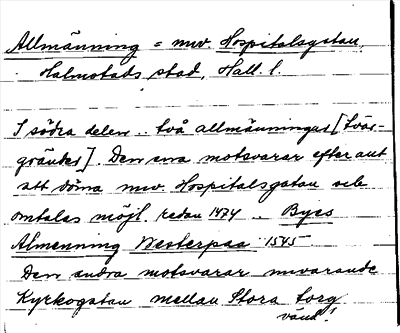 Allmänning = nuv. Hospitalsgatan,
Halmstads stad, Hall. l.
I södra delen .. två allmänningar [tvär-
gränder]. Den ena motsvarar efter allt
att döma nuv. Hospitalsgatan och
omtalas möjl. redan 1474 .. Byes
Almenning Westerpaa 1545
Den andra motsvarar nuvarande
Kyrkogatan mellan Stora torg
vänd!